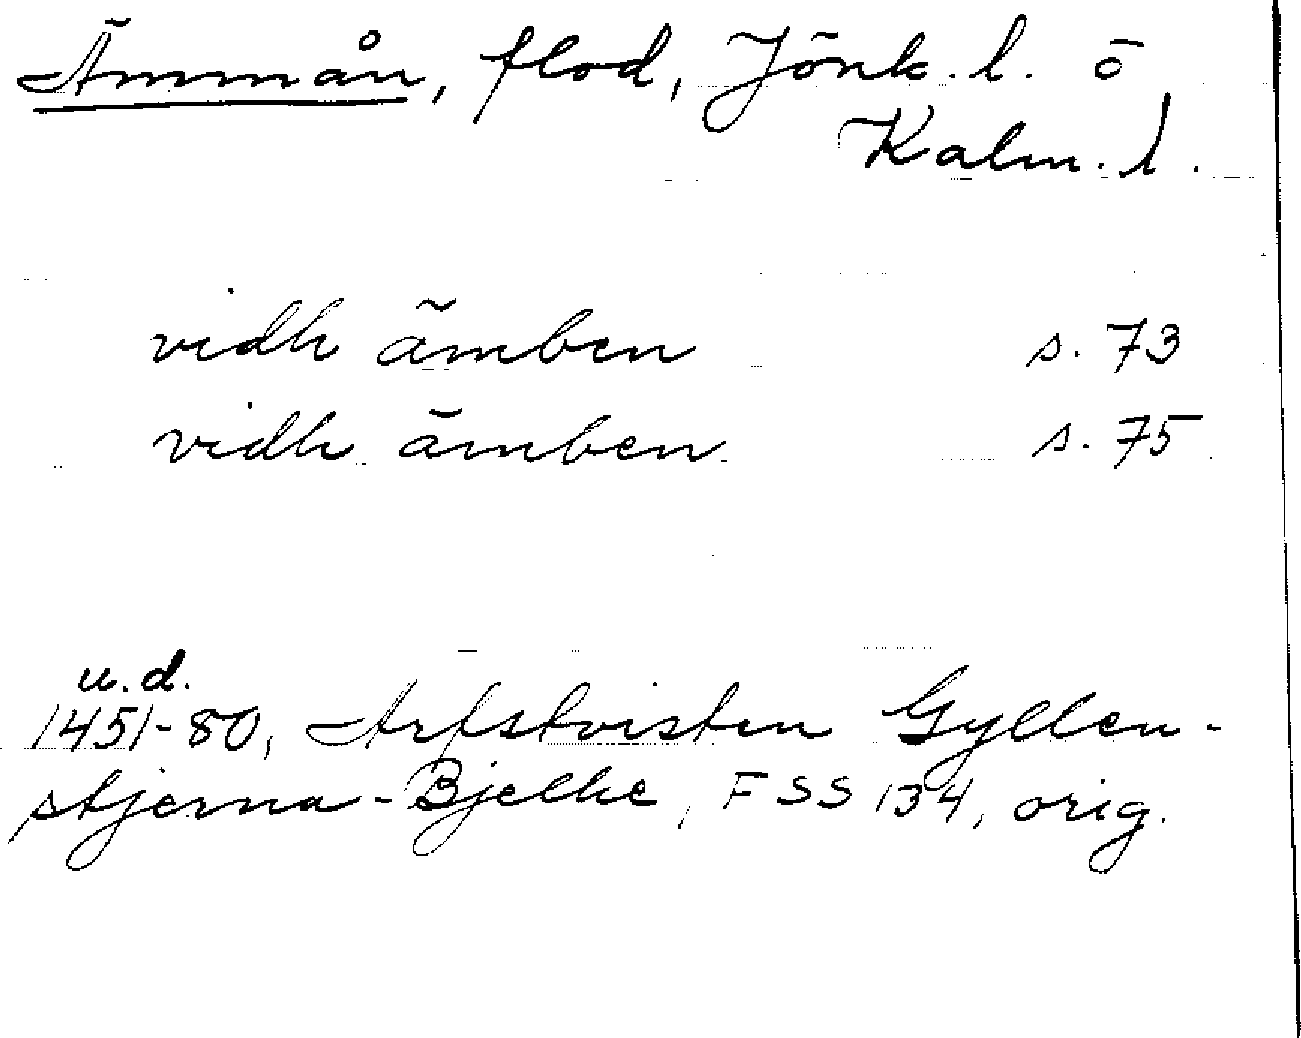 Ämmån, flod, Jönk. l. o
Kalm. l.
vidh ämben s. 73
vidh ämben s. 75
u.d.
1451-80, Arfstvisten Gyllen-
stjerna-Bjelke, FSS 134, orig.